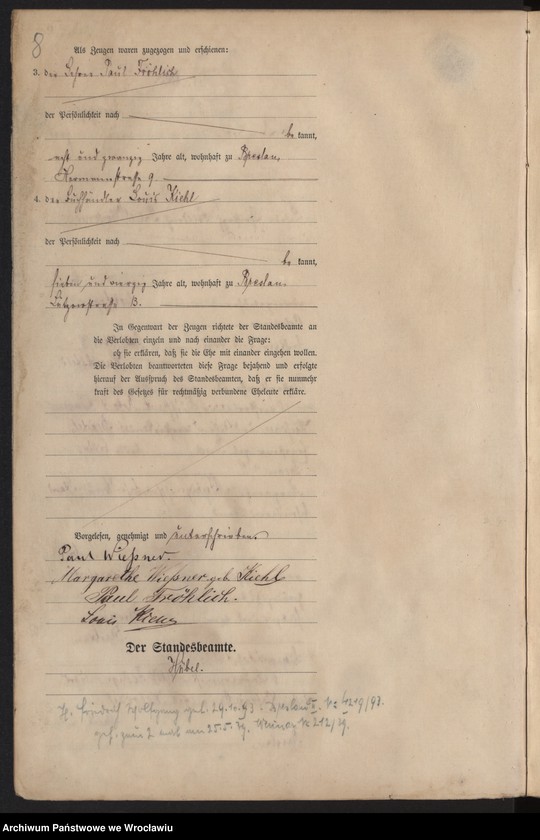 8
Als Zeugen waren zugezogen und erschienen:
3. der Lehrer Paul Fröhlich
der Persönlichkeit nach
bekannt,
acht und zwanzig Jahre alt, wohnhaft zu Breslau,
Herrmannstraße 9
4. der Buchhändler Louis Kiehl
der Persönlichkeit nach
bekannt,
sieben und vierzig Jahre alt, wohnhaft zu Breslau,
13.
In Gegenwart der Zeugen richtete der Standesbeamte an
die Verlobten einzeln und nach einander die Frage:
ob sie erklären, daß sie die Ehe mit einander eingehen wollen.
Die Verlobten beantworteten diese Frage bejahend und erfolgte
hierauf der Ausspruch des Standesbeamten, daß er sie nunmehr
kraft des Gesetzes für rechtmäßig verbundene Eheleute erkläre.
Vorgelesen, genehmigt und unterschrieben.
Paul Wießner.
Margarethe Wießner geb. Kiehl
Paul Fröhlich.
Louis Kiehl
Der Standesbeamte.
Hübel.
Friedrich geb. 29.10.93. Breslau II. № 4219/93.
am 25.5. № 212/
Archiwum Państwowe we Wrocławiu